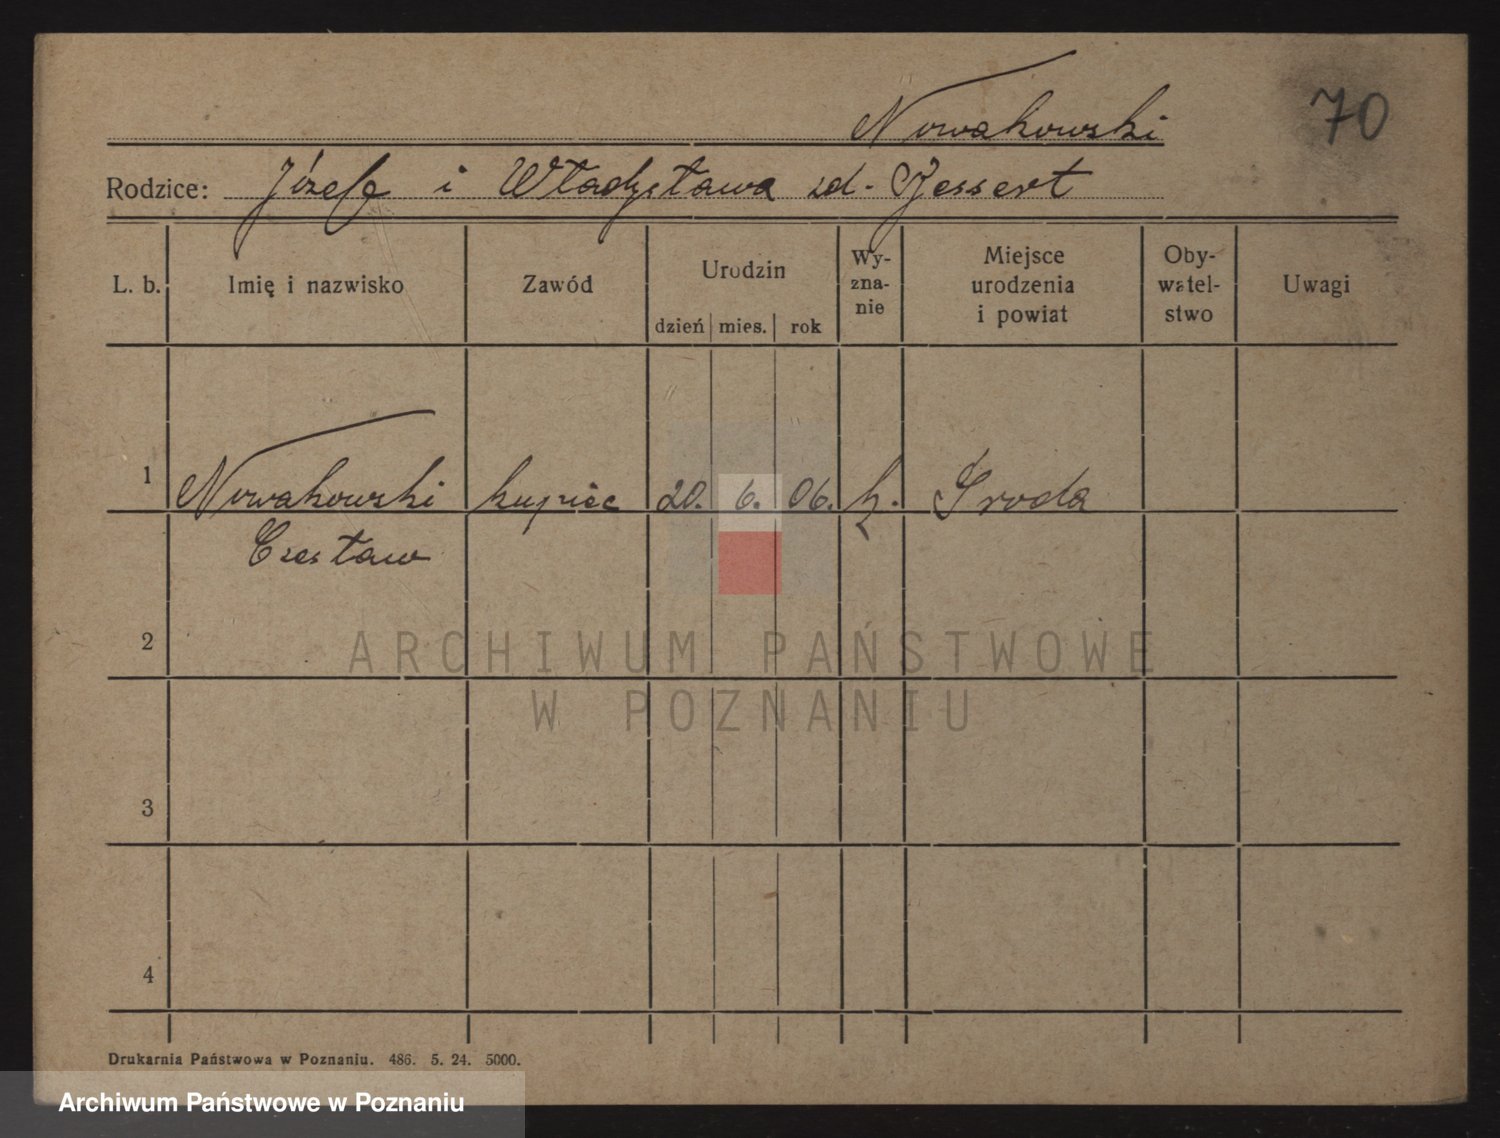 Nowakowski
70
Rodzice: Józef i Władysława zd. Jessert
L. b. Imię i nazwisko Zawód Urodzin Wy-zna-nie Miejsce urodzenia i powiat Oby-watel-stwo Uwagi
dzień mies. rok
1 Nowakowski kupiec 20. 6. 06. k. Środa
Czesław
2
ARCHIWUM PAŃSTWOWE
W POZNANIU
3
4
Drukarnia Państwowa w Poznaniu. 486. 5. 24. 5000.
Archiwum Państwowe w Poznaniu